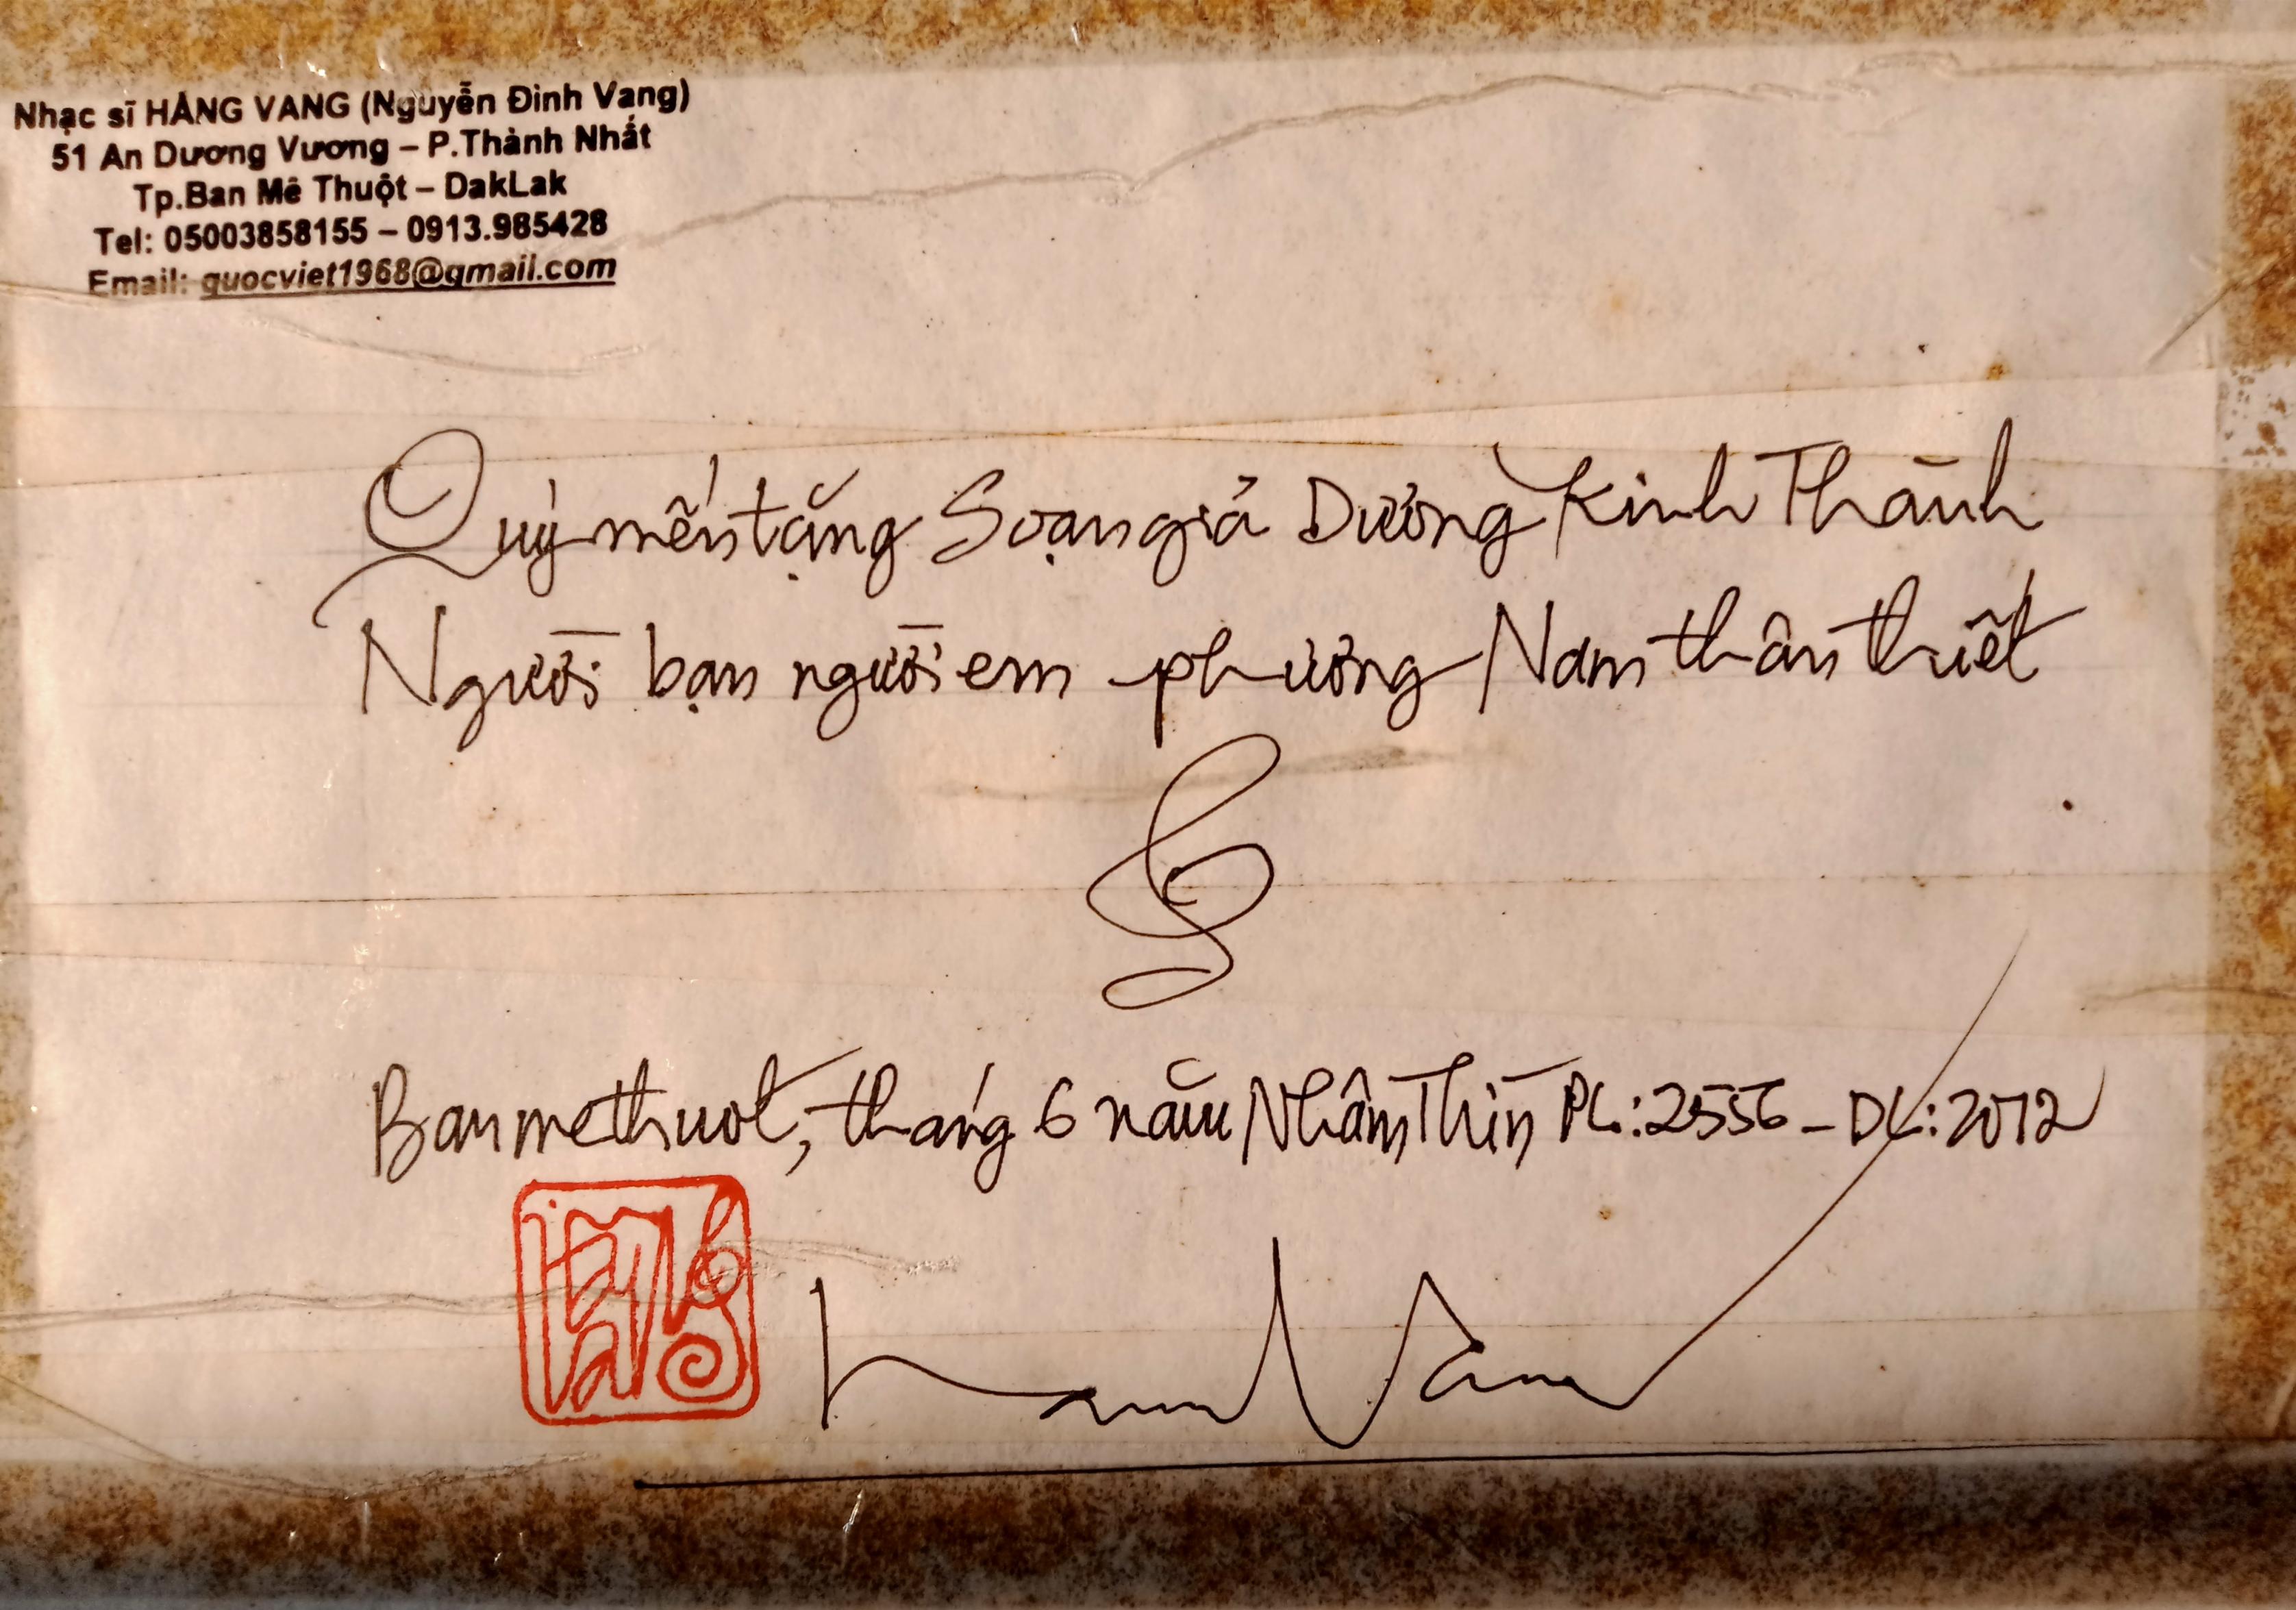 Nhạc sĩ HẰNG VANG (Nguyễn Đình Vang)
51 An Dương Vương – P.Thành Nhất
Tp.Ban Mê Thuột – DakLak
Tel: 05003858155 – 0913.985428
Email: quocviet1968@gmail.com
Quý mến tặng Soạn giả Dương Kinh Thành
Người bạn người em phương Nam thân thiết
Banmethuot, tháng 6 năm Nhâm Thìn PL: 2556 – DL: 2012
Hang Vang